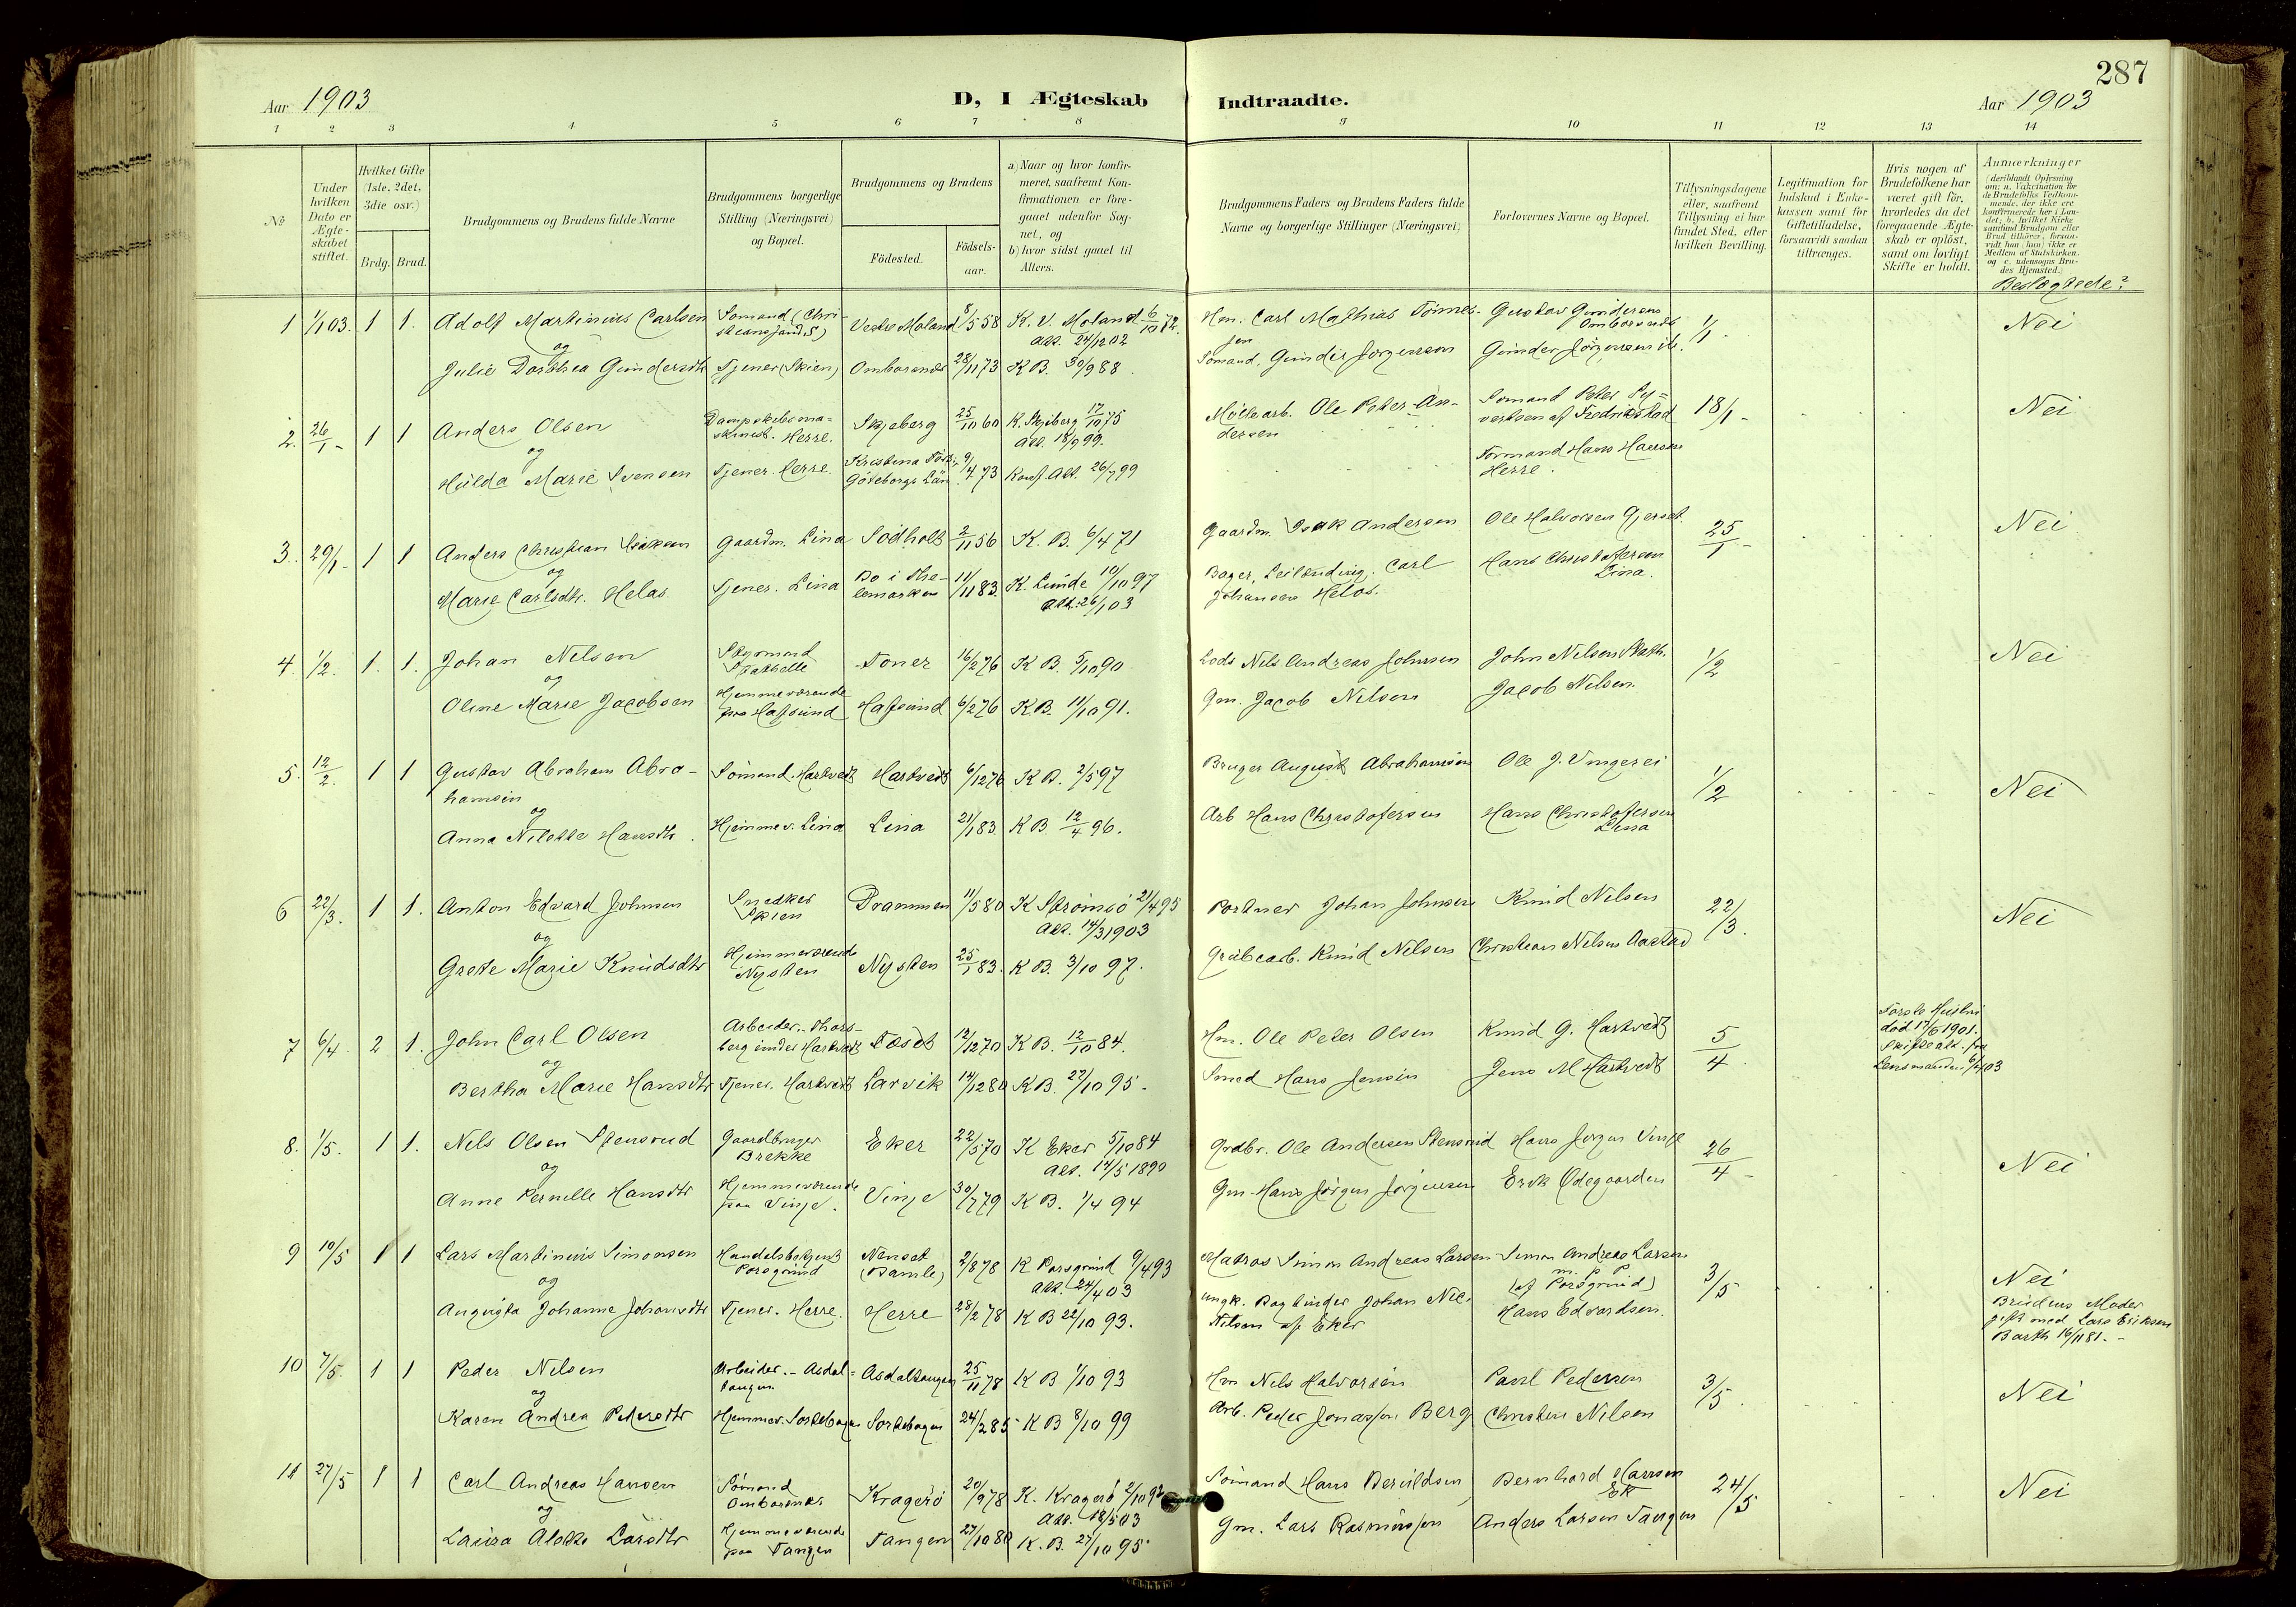 287
Aar 1903
D, I Ægteskab Indtraadte.
Aar 1903
1 2 3 4 5 6 7 8 9 10 11 12 13 14
No
Under hvilken Dato er Ægteskabet stiftet.
Hvilket Gifte (1ste, 2det, 3die osv.)
Brdg. Brud.
Brudgommens og Brudens fulde Navne
Brudgommens borgerlige Stilling (Næringsvei) og Bopæl.
Brudgommens og Brudens
Födested.
Födselsaar.
a) Naar og hvor konfirmeret, saafremt Konfirmationen er foregaaet udenfor Sognet, og
b) hvor sidst gaaet til Alters.
Brudgommens Faders og Brudens Faders fulde Navne og borgerlige Stillinger (Næringsvei)
Forlovernes Navne og Bopæl.
Tillysningsdagene eller, saafremt Tillysning ei har fundet Sted, efter hvilken Bevilling.
Legitimation for Indskud i Enkekassen samt for Giftetilladelse, forsaavidt saadan tiltrænges.
Hvis nogen af Brudefolkene har været gift för, hvorledes da det foregaaende Ægteskab er oplöst, samt om lovligt Skifte er holdt.
Anmærkninger
(deriblandt Oplysning om: a. Vakcination för de Brudefolks Vedkommende, der ikke ere konfirmerede her i Landet; b. hvilket Kirkesamfund Brudgom eller Brud tilhörer, forsaavidt han (hun) ikke er Medlem af Statskirken, og c. udensogns Brudes Hjemsted.)
Beslægtede?
1 1/1 03. 1 1. Adolf Martinius Carlsen Sömand (Christiansand S) Vestre Moland 8/5 58 K. V. Moland 6/10 72. Hm. Carl Mathias Tönnes- Gustav Gundersen Omborsnes 1/1 - Nei
og alt. 24/12 02 sen
Julie Dorthea Gundersdtr Tjener (Skien) Omborsnes 28/11 73 K B. 30/9 88. Sömand. Gunder Jörgensen Gunder Jörgensen ib.
2. 26/1 - 1 1 Anders Olsen Dampskibsmaskinist. Herre. Skjeberg 25/10 60 K. Skjeberg 17/10 75 Möllearb. Ole Peter An- Sömand Peter Sy- 18/1 - Nei
og alt. 18/9 99. dersen vertsen af Fredrikstad
Hulda Marie Svensen Tjener. Herre. Göteborgs Län 9/4 73 Konf. Alt. 26/7 99 Formand Hans Hansen Herre.
3. 29/1 - 1 1 Anders Christian Isaksen Gaardm. Lina Södholt 2/11 56 K. B. 6/4 71 Gaardm. Isak Andersen Ole Halvorsen Gjerset. 25/1 - Nei
og
Marie Carlsdtr. Helas. Tjener. Lina Bö i Thelemarken 11/11 83. K. Lunde 10/10 97 Bager, Leilænding. Carl Hans Christofersen Lina.
alt. 26/1 03 Johansen Helos.
4. 1/2. 1. 1. Johan Nilsen Styrmand Stathelle Toner 16/2 76 K B. 5/10 90 Lods Nils Andreas Johnsen John Nilsen Stath. 1/2 Nei
og
Oline Marie Jacobsen Hjemmeværende paa Hafsund Hafsund 6/2 76 K. B. 11/10 91. Gm. Jacob Nilsen Jacob Nilsen.
5. 12/2. 1 1 Gustav Abraham Abra- Sömand. Hartvedt Hartvedt 6/12 76 K B. 2/5 97 Bruger August Abrahamsen Ole J. Vingerei 1/2 Nei
hamsen
og
Anna Nilette Hansdtr. Hjemmev. Lina Lina 21/1 83. K B. 12/4 96. Arb Hans Christofersen Hans Christofersen Lina
6 22/3. 1 1. Anton Edvard Johnsen Snedker Skien Drammen 11/5 80 K Strömsö 21/4 95 Portner Johan Johnsen Knud Nilsen 22/3. Nei
og alt. 14/3 1903
Grete Marie Knudsdtr Hjemmeværende Nysten Nysten 25/1 83. K B. 3/10 97. Grubearb. Knud Nilsen Christian Nilsen Aastad
7 6/4. 2 1. John Carl Olsen Arbeider. Thorsberg under Hartvedt Tösdt 12/12 70 K B. 12/10 84. Hm. Ole Peter Olsen Knud G. Hartvedt 5/4 Förste Hustru död 17/6 1901. Skifteatt. fra Lensmanden 6/4 03
og
Bertha Marie Hansdtr Tjener. Hartvedt Larvik 14/12 80 K B. 27/10 95. Smed Hans Jensen Jens M Hartvedt
8. 1/5. 1 1. Nils Olsen Stensrud Gaardbruger Brekke Eker 22/5 70 K Eker 5/10 84 Grdbr. Ole Andersen Stensrud Hans Jörgen Vinje 26/4 - Nei
og alt. 14/5 1890
Anne Pernille Hansdtr Hjemmeværende paa Vinje. Vinje 30/7 79 K B. 1/4 94 Gm. Hans Jörgen Jörgensen Erik Ödegaarden
9 10/5 1 1 Lars Martinius Simonsen Handelsbetjent Porsgrund Nenset (Bamle) 2/8 78 K Porsgrund 9/4 93 Matros Simon Andreas Larsen Simon Andreas Larsen 3/5 Nei
og alt. 24/4 03 (af Porsgrund)
Augusta Johanne Johansdtr Tjener. Herre. Herre 28/2 78 K B 22/10 93. ungk. Bogbinder Johan Nic. Nilsen af Eker Hans Edvardsen. Brudens Moder gift med Lars Eriksen Barth 16/11 81. -
10 7/5. 1 1 Peder Nilsen Arbeider. - Asdaltangen Asdaltangen 25/11 78 K B 1/10 93 Hm. Nils Halvorsen Paul Pedersen 3/5. Nei
og
Karen Andrea Pedersdtr Hjemmev. Sortebogen Sortebogen 24/2 85 K B 8/10 99 Arb. Peder Jonassen Berg Christen Nilsen
11 27/5 1 1 Carl Andreas Hansen Sömand Omborsnes Kragerö 20/9 78 K. Kragerö 2/10 92 Sömand Hans Beruldsen Bernhard Hansen Ek 24/5 Nei
og alt. 18/5 03
Laura Alette Larsdtr Hjemmeværende paa Tangen Tangen 27/10 80 K. B. 27/10 95. Gm. Lars Rasmussen Anders Larsen Tangen